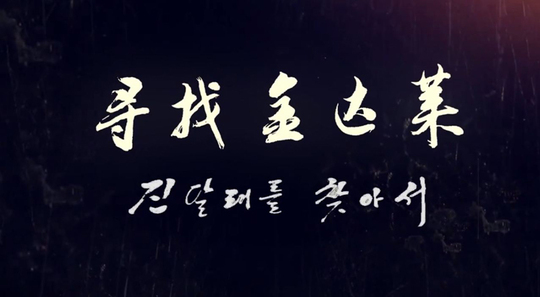 寻找金达莱
진달래를 찾아서